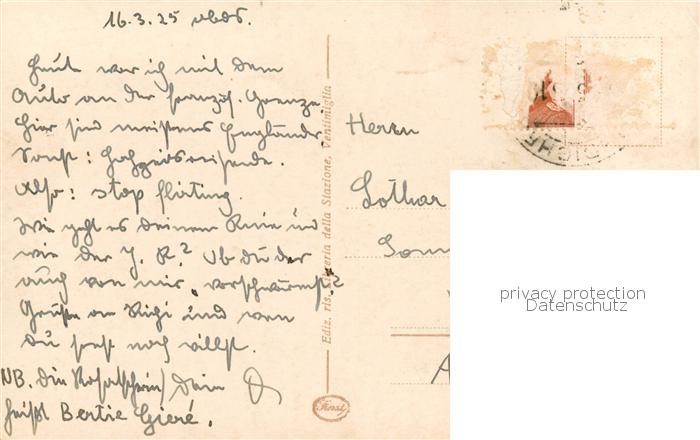 16.3.25 abds.
Heute war ich mit dem
Auto an der französ. Grenze.
Hier sind meistens Engländer.
Sonst: Hochzeitsreisende.
Also: stop flirting.
Wie geht es Deinem Knie und
wie der J. R.? Ob du der
auch von mir „vorschwärmst"?
Grüsse an Richi und wen
Du sonst noch willst.
NB. Die Dein
heißt Bertie Gieré.
Ediz. ris. della Stazione, Ventimiglia
Herrn
Lothar
privacy protection
Datenschutz